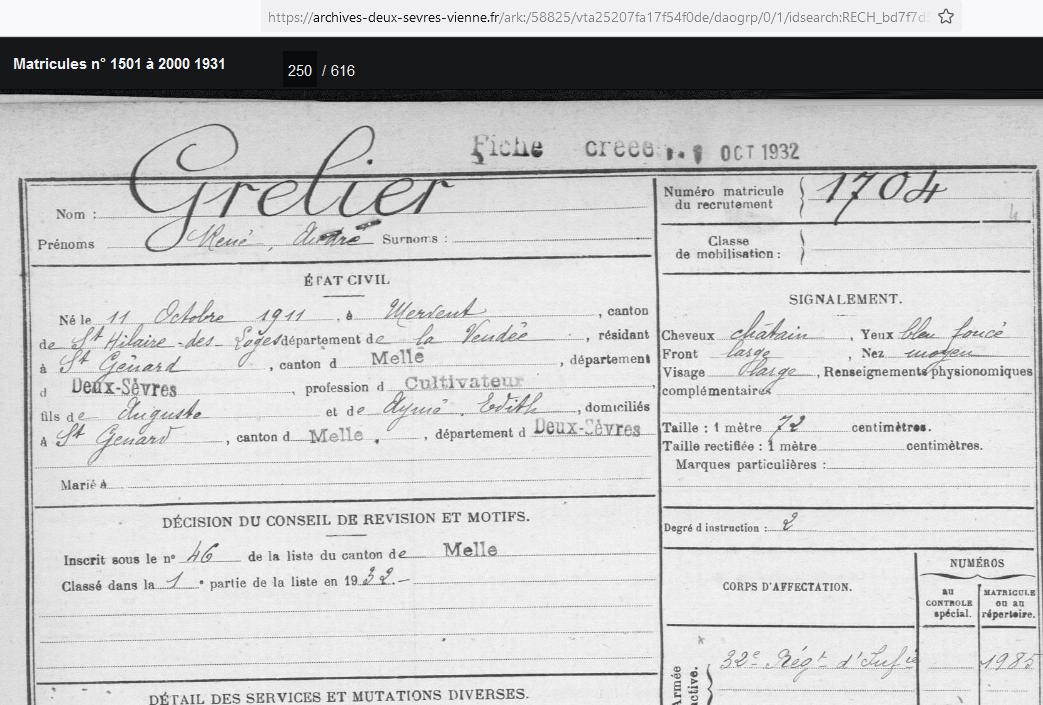 https://archives-deux-sevres-vienne.fr/ark:/58825/vta25207fa17f54f0de/daogrp/0/1/idsearch:RECH_bd7f7d
Matricules n° 1501 à 2000 1931 250 / 616
Fiche créée OCT 1932
Nom : Grelier
Prénoms René, André Surnoms :
ÉTAT CIVIL
Né le 11 Octobre 1911, à Mervent, canton
de St Hilaire-des-Loges département de la Vendée, résidant
à St Génard, canton d Melle, département
d Deux-Sèvres, profession d Cultivateur,
fils de Auguste et de Aymé, Edith, domiciliés
à St Genard, canton d Melle, département d Deux-Sèvres
Marié à
DÉCISION DU CONSEIL DE REVISION ET MOTIFS.
Inscrit sous le n° 46 de la liste du canton de Melle
Classé dans la 1e partie de la liste en 1932.-
DÉTAIL DES SERVICES ET MUTATIONS DIVERSES.
Numéro matricule
du recrutement } 1704
Classe
de mobilisation : }
SIGNALEMENT.
Cheveux châtain, Yeux bleu foncé
Front large, Nez moyen
Visage large, Renseignements physionomiques
complémentaires
Taille : 1 mètre 72 centimètres.
Taille rectifiée : 1 mètre centimètres.
Marques particulières :
Degré d instruction : 2
CORPS D'AFFECTATION.
NUMÉROS
au
CONTROLE
spécial.
MATRICULE
ou au
répertoire.
Armée
active.
32e Régt d'Infie 1985